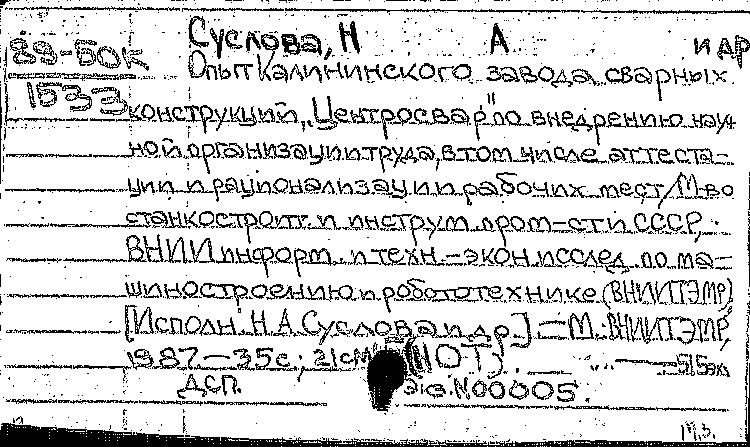 Суслова, Н А и др
89-БОК
1533
Опыт Калининского завода сварных
конструкций „Центросвар" по внедрению науч
ной организации труда, в том числе аттеста-
ции и рационализации рабочих мест / М-во
станкостроит. и инструм. пром-сти СССР,
ВНИИ информ. и техн.-экон. исслед. по ма-
шиностроению и робототехнике (ВНИИТЭМР)
[Исполн. Н.А. Суслова и др.] – М.: ВНИИТЭМР,
1987 – 35с.; 21см (НОТ). 515экз
ДСП. Экз. N00005.